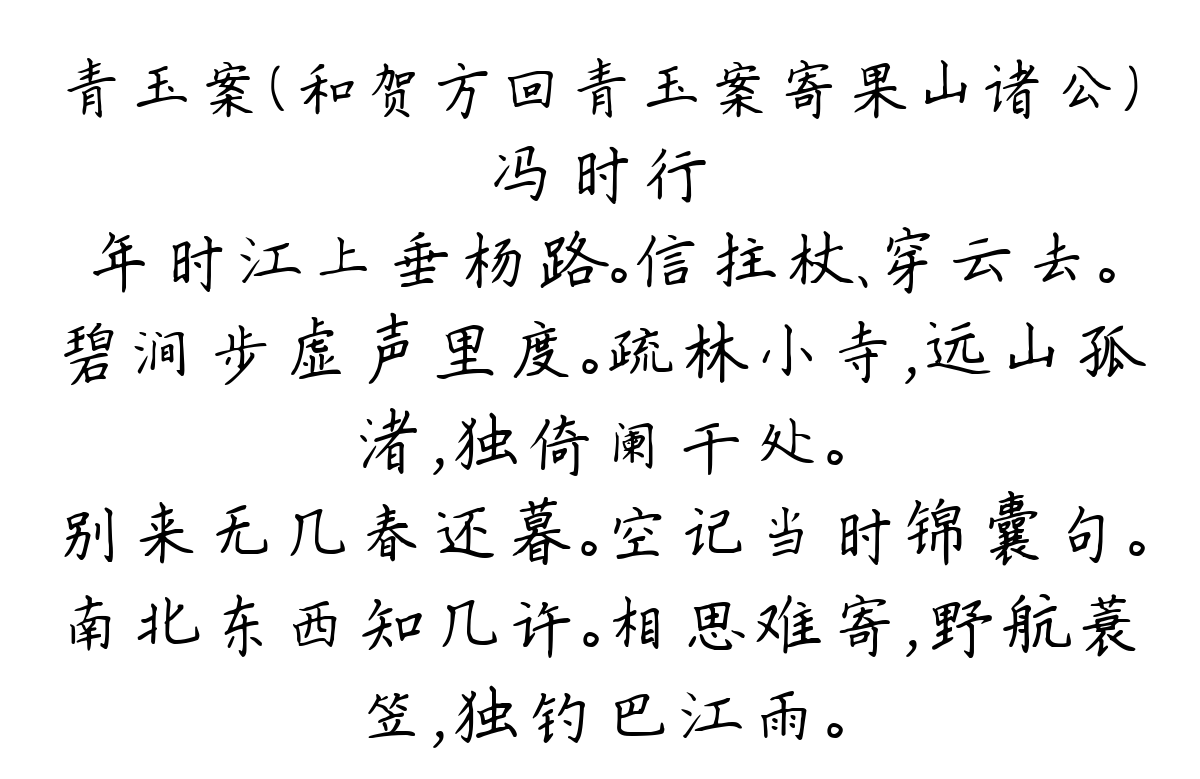 青玉案(和贺方回青玉案寄果山诸公)
冯时行
年时江上垂杨路。信拄杖、穿云去。
碧涧步虚声里度。疏林小寺,远山孤
渚,独倚阑干处。
别来无几春还暮。空记当时锦囊句。
南北东西知几许。相思难寄,野航蓑
笠,独钓巴江雨。